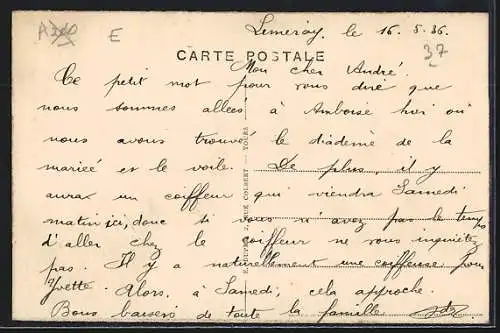 E
Limeray, le 16.5.36.
37
CARTE POSTALE
Mon cher André.
Ce petit mot pour vous dire que
nous sommes allées à Amboise hier où
nous avons trouvé le diadème de la
mariée et le voile. De plus, il y
aura un coiffeur qui viendra Samedi
matin ici, donc si vous n'avez pas le temps
d'aller chez le coiffeur ne vous inquiétez
pas. Il y a naturellement une coiffeuse pour
Yvette. Alors, à Samedi, cela approche.
Bons baisers de toute la famille
2, RUE COLBERT — TOURS